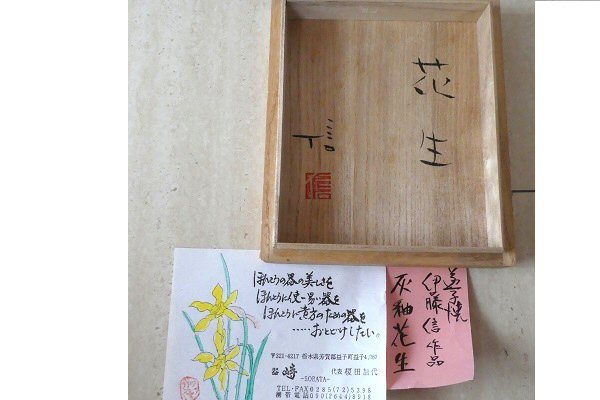 花生
信
益子焼
伊藤信作品
灰釉花生
ほんとうの器の美しさを
ほんとうに使い易い器を
ほんとうに貴方のための器を
……おとどけしたい。
〒321-4217 栃木県芳賀郡益子町益子4,787
代表 榎田
-SORATA-
TEL・FAX0285(72)5398
携帯電話090(2644)8918